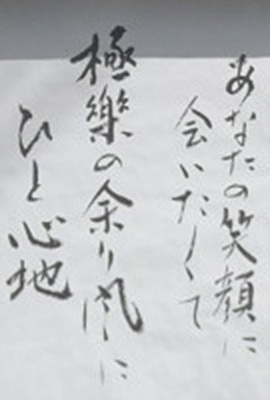 あなたの笑顔に
会いたくて
極樂の余り風に
ひと心地